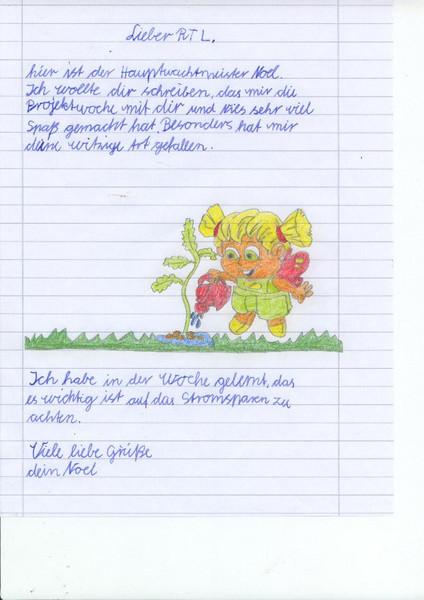 Lieber RTL,
hier ist der Hauptwachtmeister Noel.
Ich wollte dir schreiben, das mir die
Projektwoche mit dir und Nies sehr viel
Spaß gemacht hat. Besonders hat mir
deine witzige Art gefallen.
Ich habe in der Woche gelernt, das
es wichtig ist auf das Stromsparen zu
achten.
Viele liebe Grüße
dein Noel